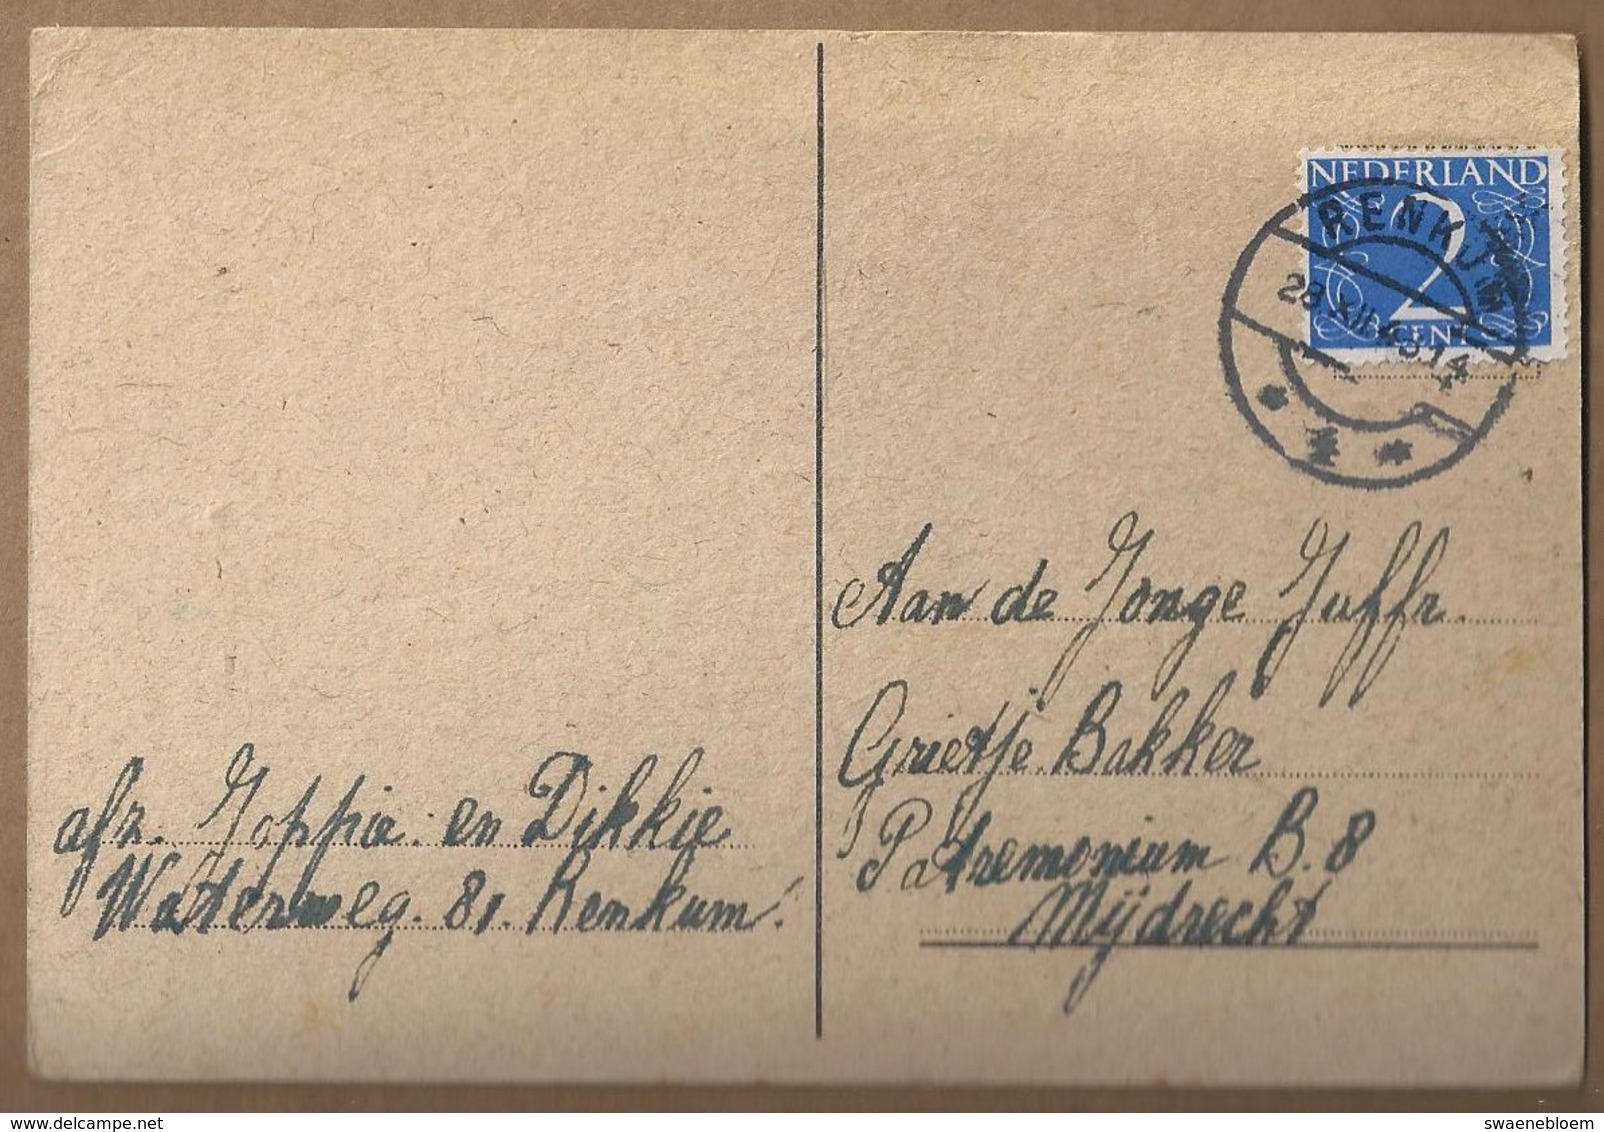 NEDERLAND
2
CENT
RENKUM
28 XII 14
Aan de Jonge Juffr.
Grietje Bakker
Patremonium B. 8
Mijdrecht
afz. Joppie en Dikkie
Waterweg. 81. Renkum.
www.delcampe.net
swaenebloem